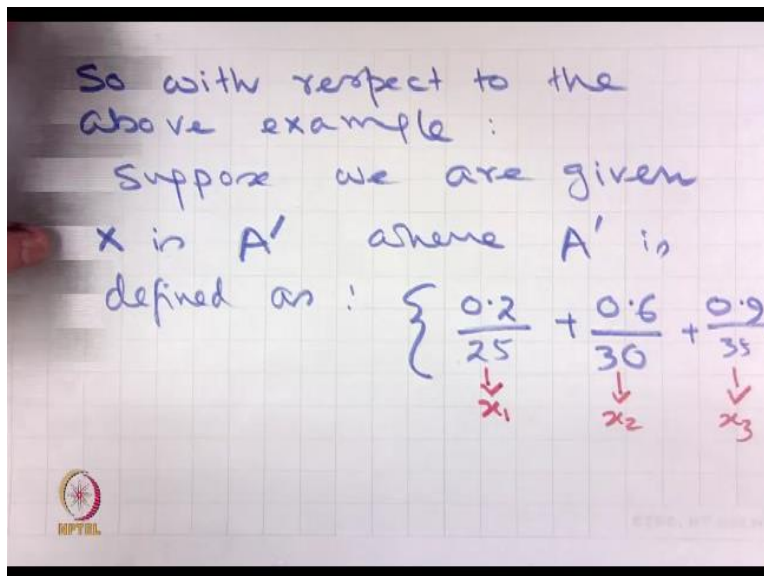 So with respect to the
above example :
Suppose we are given
x is A' where A' is
defined as : { 0.2/25 + 0.6/30 + 0.9/35
x₁ x₂ x₃
NPTEL